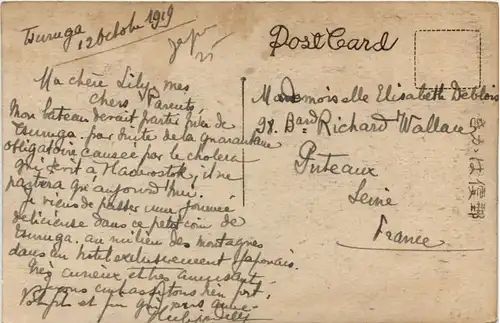 Tsuruga
12 Octobre 1919
Post Card
Ma chère Lily, mes
chers Parents,
Mon bateau devait partir hier de
Tsuruga. par suite de la quarantaine
obligatoire causée par le cholera
qui à Vladivostok, il ne
partira qu'aujourd'hui.
Je viens de passer une journée
délicieuse dans ce petit coin de
Tsuruga. au milieu des montagnes
dans un hôtel exclusivement Japonais.
très curieux et très amusant.
bien fort.
et
Mademoiselle Elisabeth Deblois
98. Bard Richard Wallace
Puteaux
Seine
France
きかは便郵